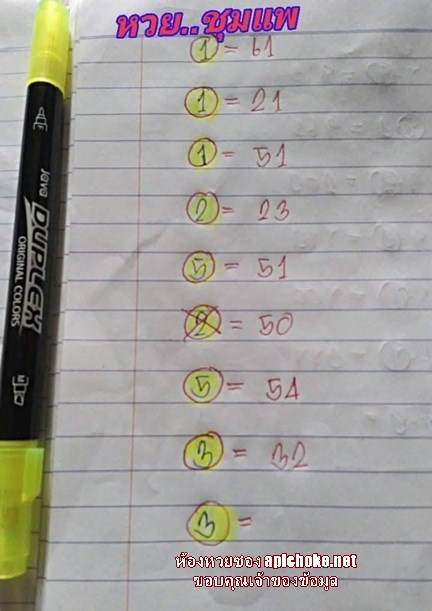 หวย..ชุมแพ
1 = 61
1 = 21
1 = 51
2 = 23
5 = 51
2 = 50
5 = 54
3 = 32
3 =
Java DUPLEX
ORIGINAL COLORS
ห้องหวยของ apichoke.net
ขอบคุณเจ้าของข้อมูล